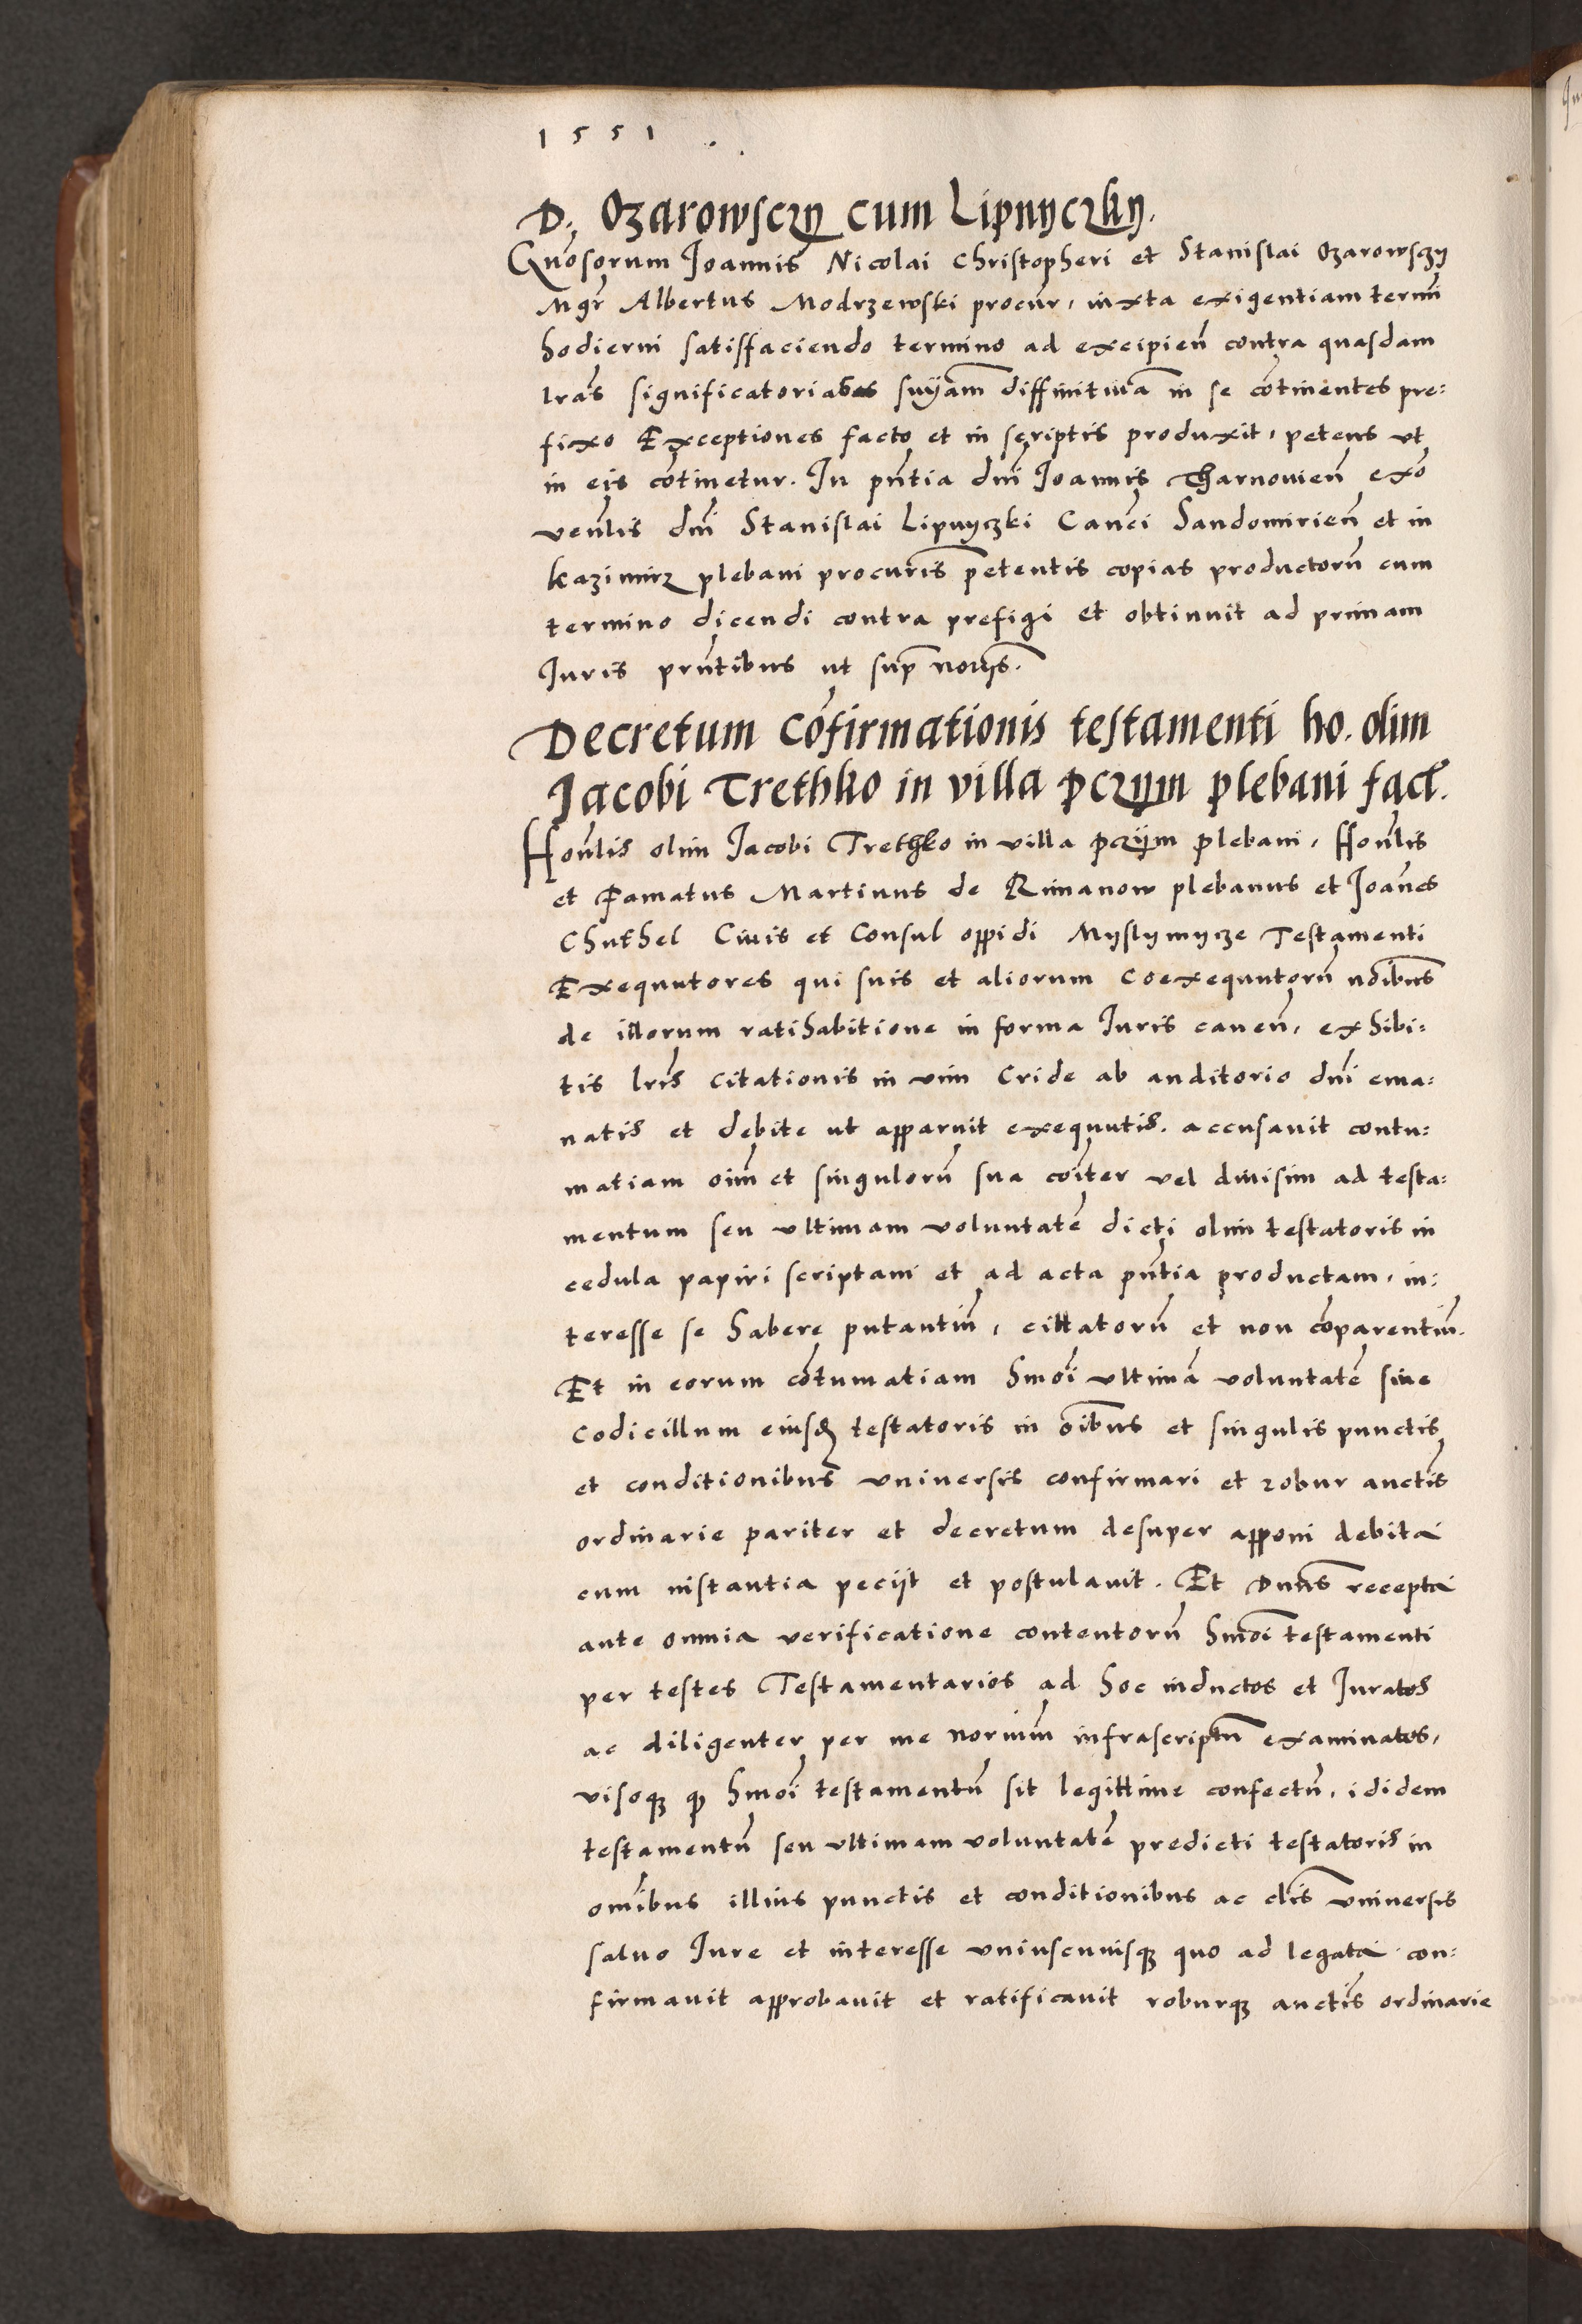 1551
D. Ozarowsczy cum Lipnyczky.
Gnosorum Joannis Nicolai Christopheri et Stanislai Ozarowsczy
Mgr Albertus Modrzewski procur, iuxta exigentiam termi
hodierni satisffaciendo termino ad excipien contra quasdam
lras significatorias snyam diffinitiuam in se cōtinentes pre:
fixo Exceptiones facto et in scriptis produxit, petens vt
in eis cōtinetur. In pntia dni Joannis Tharnouien exō
venlis dni Stanislai Lipnyczki Canci Sandomirien et in
kazimirz plebani procuris petentis copias productorū cum
termino dicendi contra prefigi et obtinuit ad primam
Juris pntibus ut sup notis.
Decretum cōfirmationis testamenti ho. olim
Jacobi Trethko in villa Pczym plebani fact.
Honlis olim Jacobi Trethko in villa Pczÿm plebani, Honlis
et Famatus Martinus de Rimanow plebanus et Joanes
Chuthel Ciuis et Consul oppidi Myslymycze Testamenti
Exequutores qui suis et aliorum Coexequutorū noibus
de illorum ratihabitione in forma Juris cauen, exhibi:
tis lris Citationis in vim Cride ab auditorio dni ema:
natis et debite ut apparuit exequutis. accusauit contu:
matiam oim et singulorū sua coiter vel diuisim ad testa:
mentum seu vltimam voluntatē dicti olim testatoris in
cedula papiri scriptam et ad acta pntia productam, in:
teresse se habere putantiū, cittatorū et non cōparentiū.
Et in eorum cōtumatiam hmoi vltimā voluntatē siue
Codicillum eiusd testatoris in oibus et singulis punctis
et conditionibus vniuersis confirmari et robur auctis
ordinarie pariter et decretum desuper apponi debita
cum instantia peciit et postulauit. Et Dnas recepta
ante omnia verificatione contentorū hmoi testamenti
per testes Testamentarios ad hoc inductos et Juratos
ac diligenter per me norium infrascriptū examinatos,
visoq q hmoi testamentū sit legittime confectū, ididem
testamentū seu vltimam voluntatē predicti testatoris in
omibus illius punctis et conditionibus ac clis vniuersis
saluo Jure et interesse vniuscuiusq quo ad legata con:
firmauit approbauit et ratificauit roburq auctis ordinarie